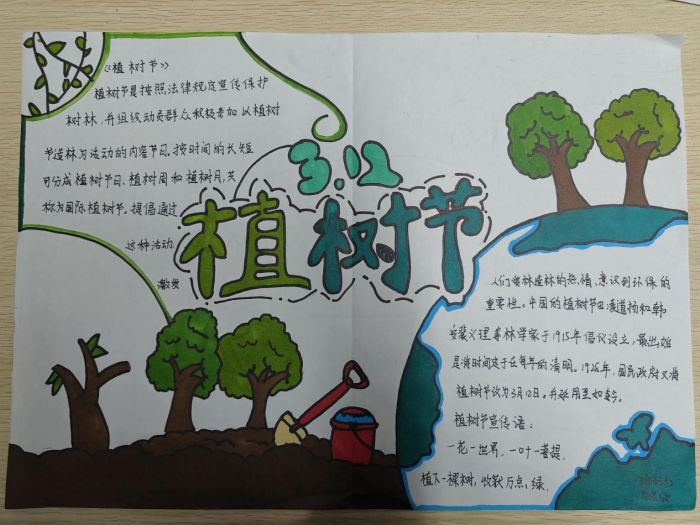 《植树节》
植树节是按照法律规定宣传保护
树林,并组织动员群众积极参加以植树
节造林为活动的内容节日。按时间的长短
可分成植树节日、植树周和植树月,共
称为国际植树节。提倡通过
这种活动
激发
3.12
植树节
人们爱林造林的热情、意识到环保的
重要性。中国的植树节由凌道扬和韩
安裴义理等林学家于1915年倡议设立,最出
是将时间定于在每年的清明。1928年,国民政府又将
植树节改为3月12日。并延用至如今。
植树节宣传语:
一花一世界,一叶一菩提,
植下一棵树,收获万点绿.